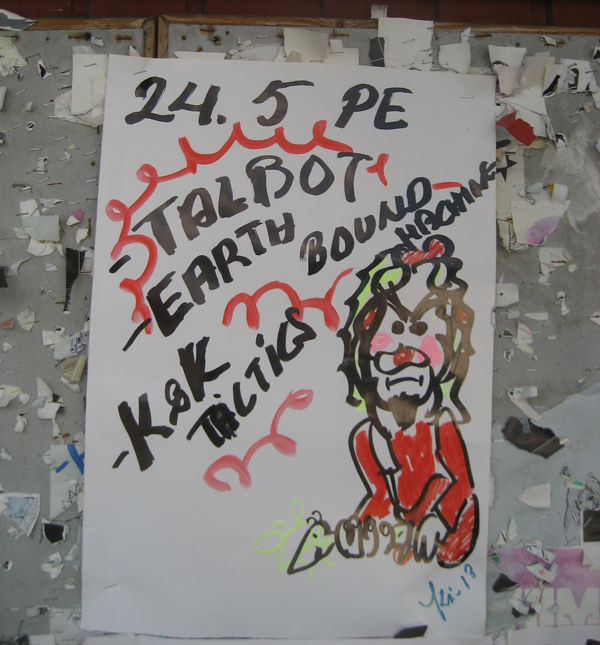 24.5 PE
-TALBOT
-EARTH BOUND MACHINE
-K&K TACTICS
13